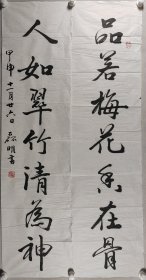 品若梅花香在骨
人如翠竹清為神
甲申十一月廿六日
明書